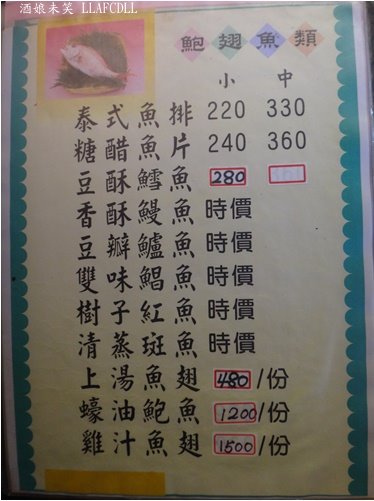 酒娘未笑 LLAFCDLL
鮑翅魚類
小 中
泰式魚排 220 330
糖醋魚片 240 360
豆酥鱈魚 280
香酥鰻魚 時價
豆瓣鱸魚 時價
雙味鯧魚 時價
樹子紅魚 時價
清蒸斑魚 時價
上湯魚翅 480/份
蠔油鮑魚 1200/份
雞汁魚翅 1500/份